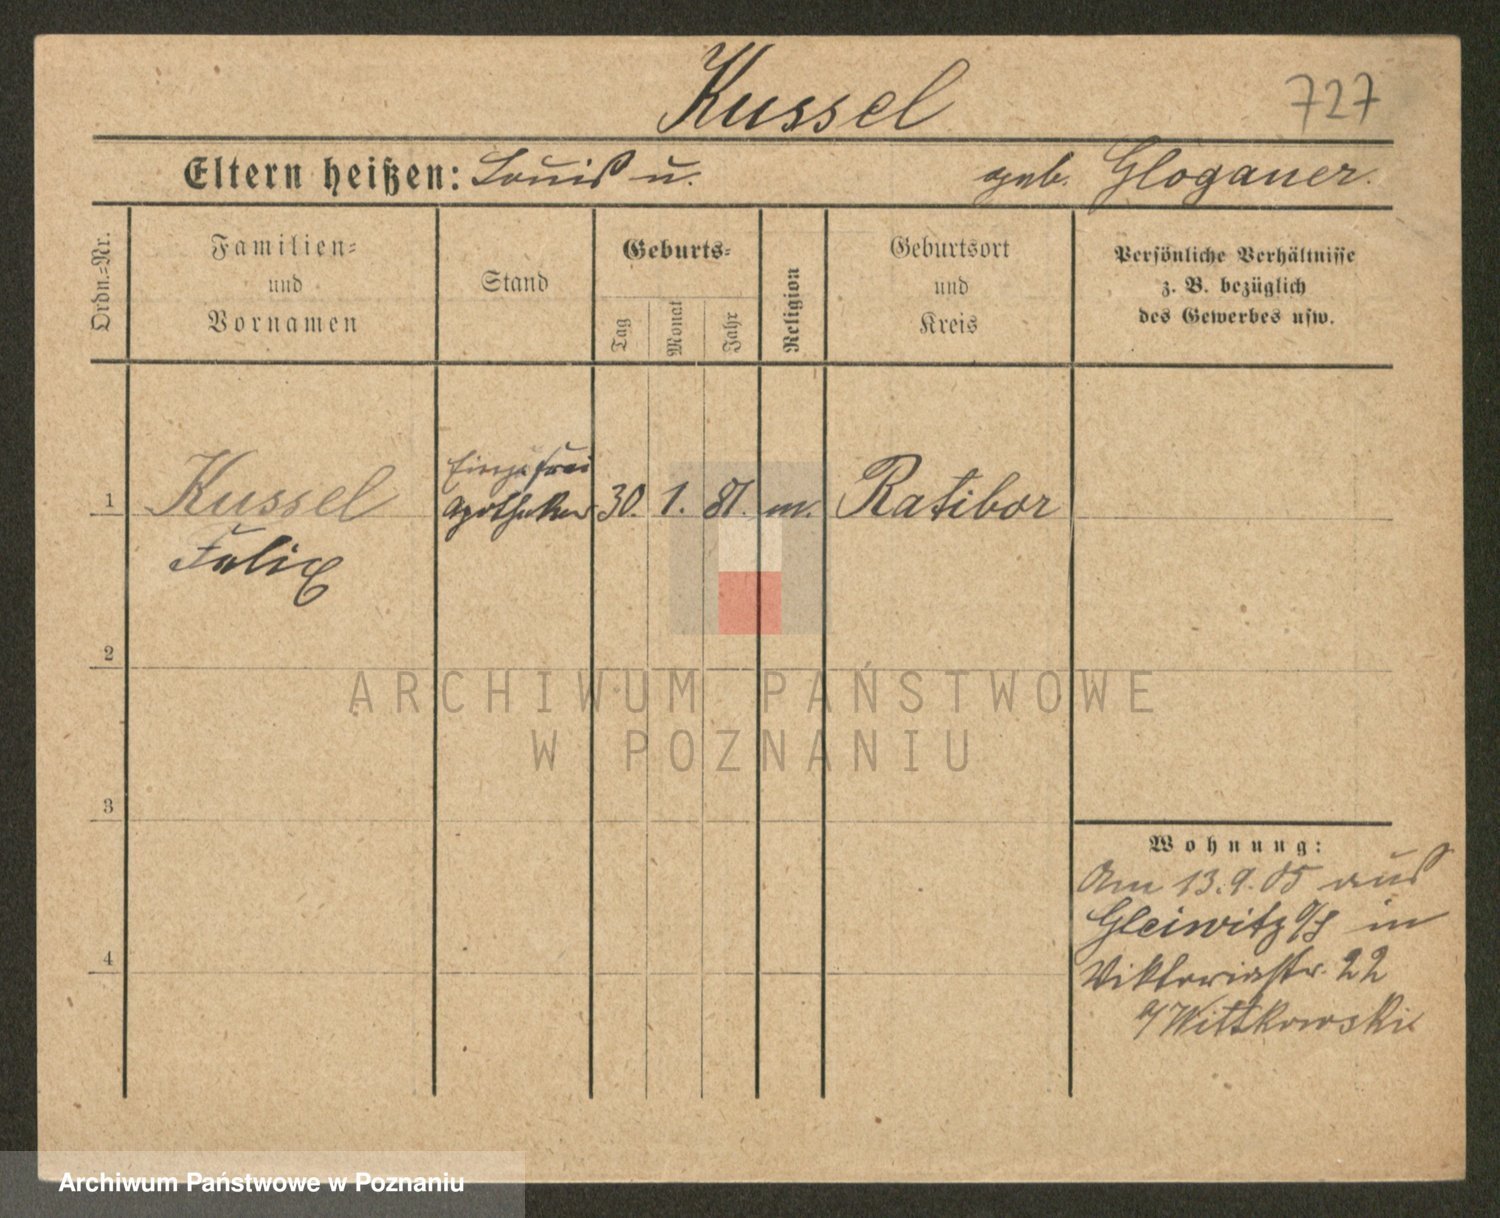 Kussel
727
Eltern heißen: Louis u. geb. Glogauer.
Ordn.=Nr.
Familien=
und
Vornamen
Stand
Geburts=
Tag
Monat
Jahr
Religion
Geburtsort
und
Kreis
Persönliche Verhältnisse
z. B. bezüglich
des Gewerbes usw.
1
Kussel
Felix
Einj. frei
Apotheker
30. 1. 81. m. Ratibor
2
3
4
Wohnung:
Am 13.9.05 aus
Gleiwitz O/S in
Viktoriastr. 22
b/Wittkowski
ARCHIWUM PAŃSTWOWE
W POZNANIU
Archiwum Państwowe w Poznaniu